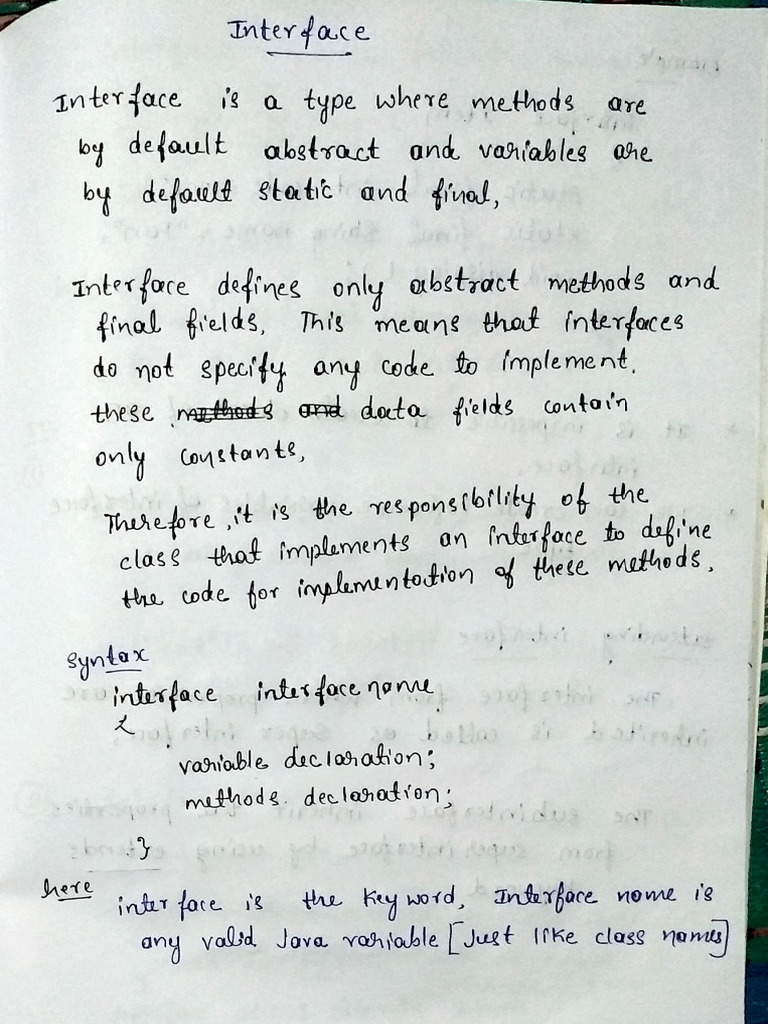 Interface
Interface is a type where methods are
by default abstract and variables are
by default static and final,
Interface defines only abstract methods and
final fields, This means that interfaces
do not specify any code to implement.
these methods and data fields contain
only constants,
Therefore, it is the responsibility of the
class that implements an interface to define
the code for implementation of these methods.
syntax
interface interface name
{
variable declaration;
methods declaration;
}
here interface is the keyword, Interface name is
any valid Java variable [Just like class names]